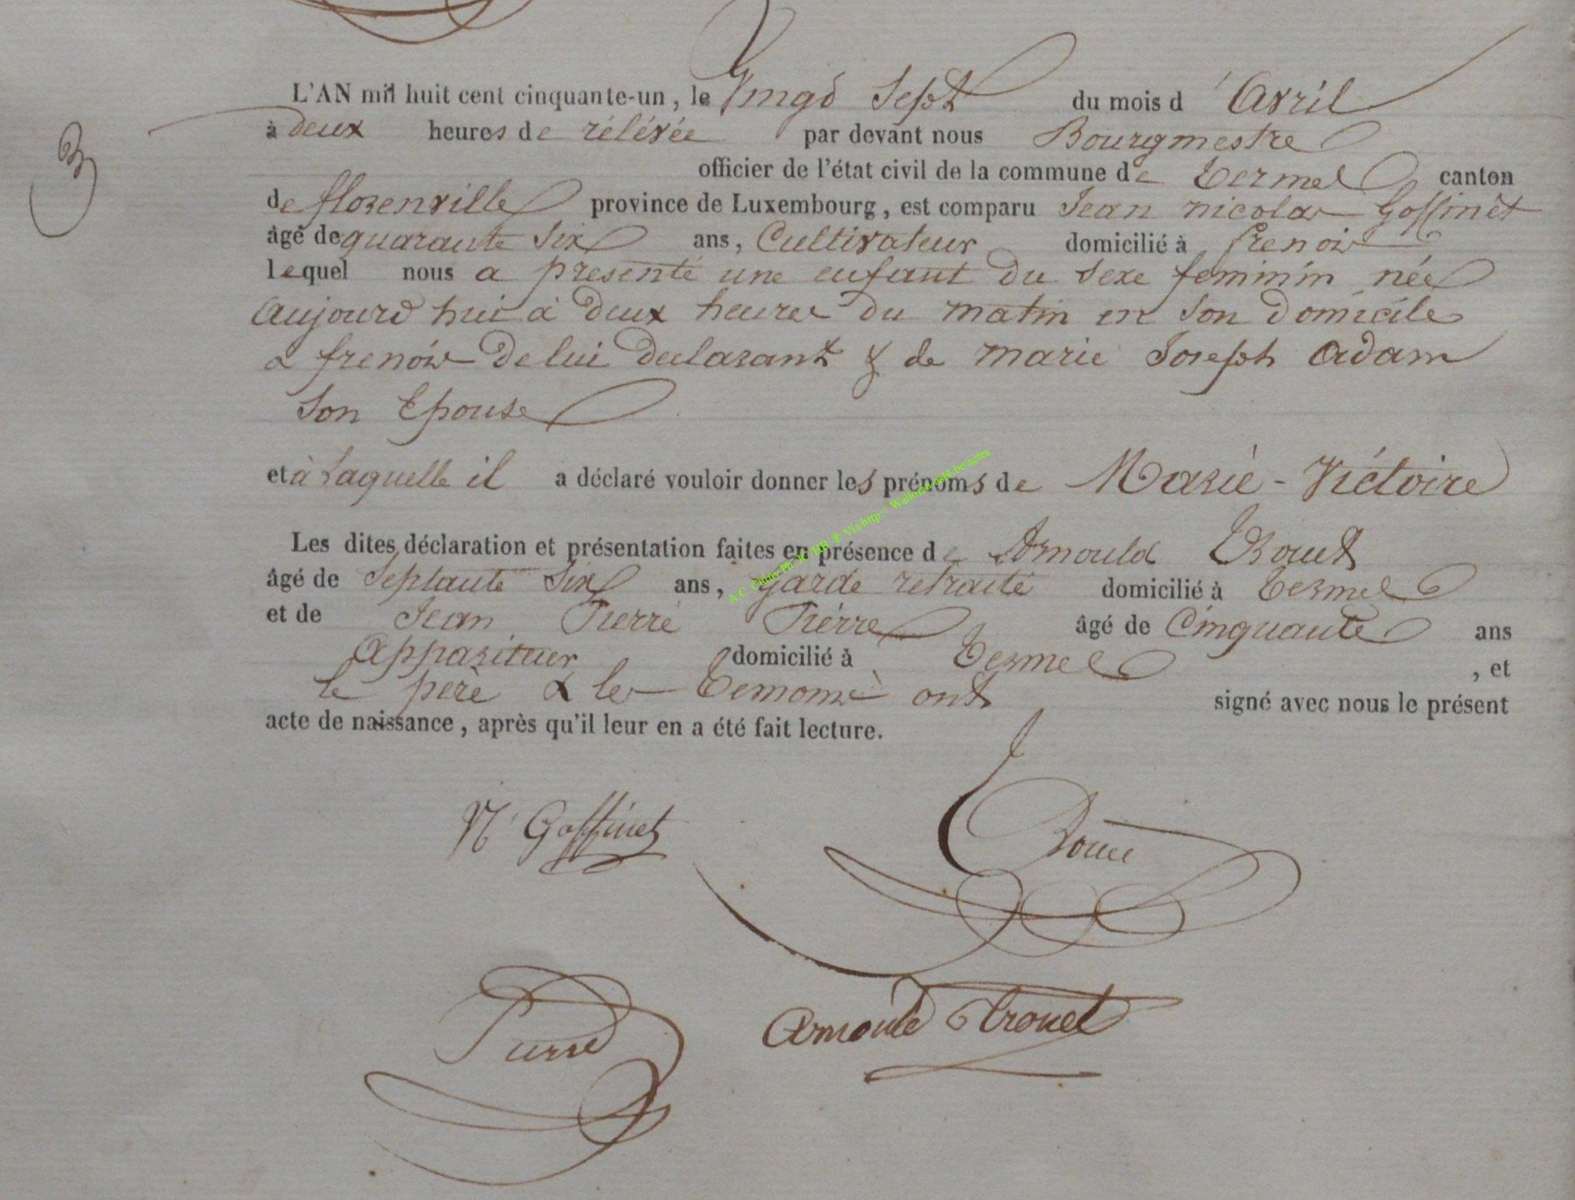 3
L'AN mil huit cent cinquante-un, le Vingt Sept du mois d'Avril
à deux heures de rélévée par devant nous Bourgmestre
officier de l'état civil de la commune de Termes canton
de florenville province de Luxembourg, est comparu Jean nicolas Goffinêt
âgé de quarante Six ans, Cultivateur domicilié à frenois
lequel nous a presenté une enfant du Sexe feminin née
aujourd'hui à deux heures du matin en Son domicile
a frenois de lui declarant & de marie Joseph Adam
Son Epouse
et à Laquelle il a déclaré vouloir donner les prénoms de Marie - Victoire
Les dites déclaration et présentation faites en présence de Arnould Trouet
âgé de Septante Six ans, garde retraité domicilié à Termes
et de Jean Pierre Pierre âgé de Cinquante ans
Appariteur domicilié à Termes, et
le père & les temoins ont signé avec nous le présent
acte de naissance, après qu'il leur en a été fait lecture.
N Goffinet
Pierre Arnould trouet